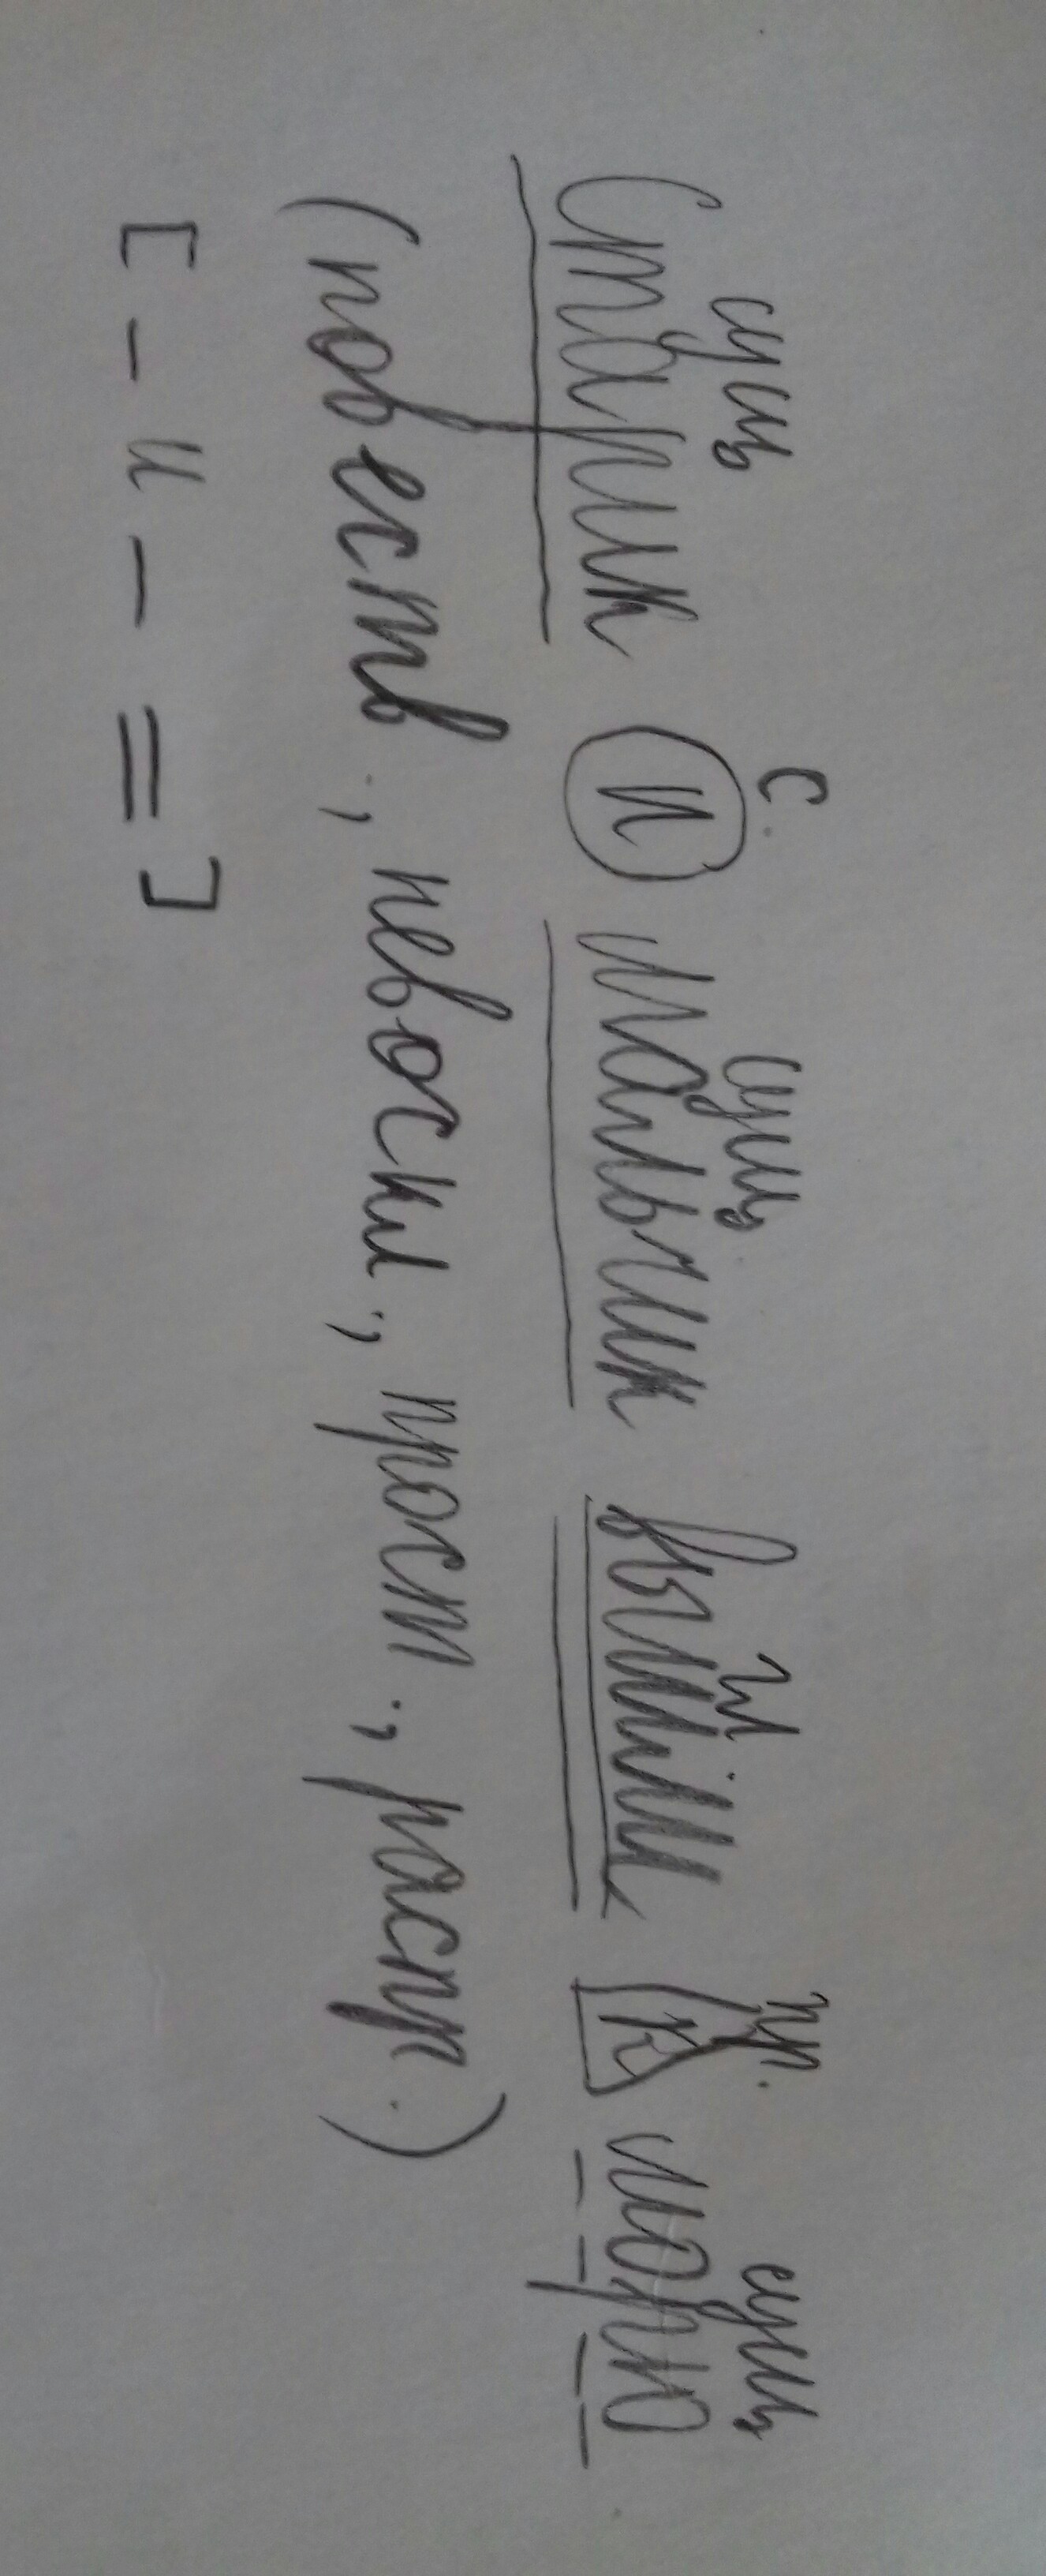 сущ с. сущ гл. пр. сущ
Старик и мальчик вышли к морю
(повеств., невоскл., прост., распр.)
[ – и – = ]